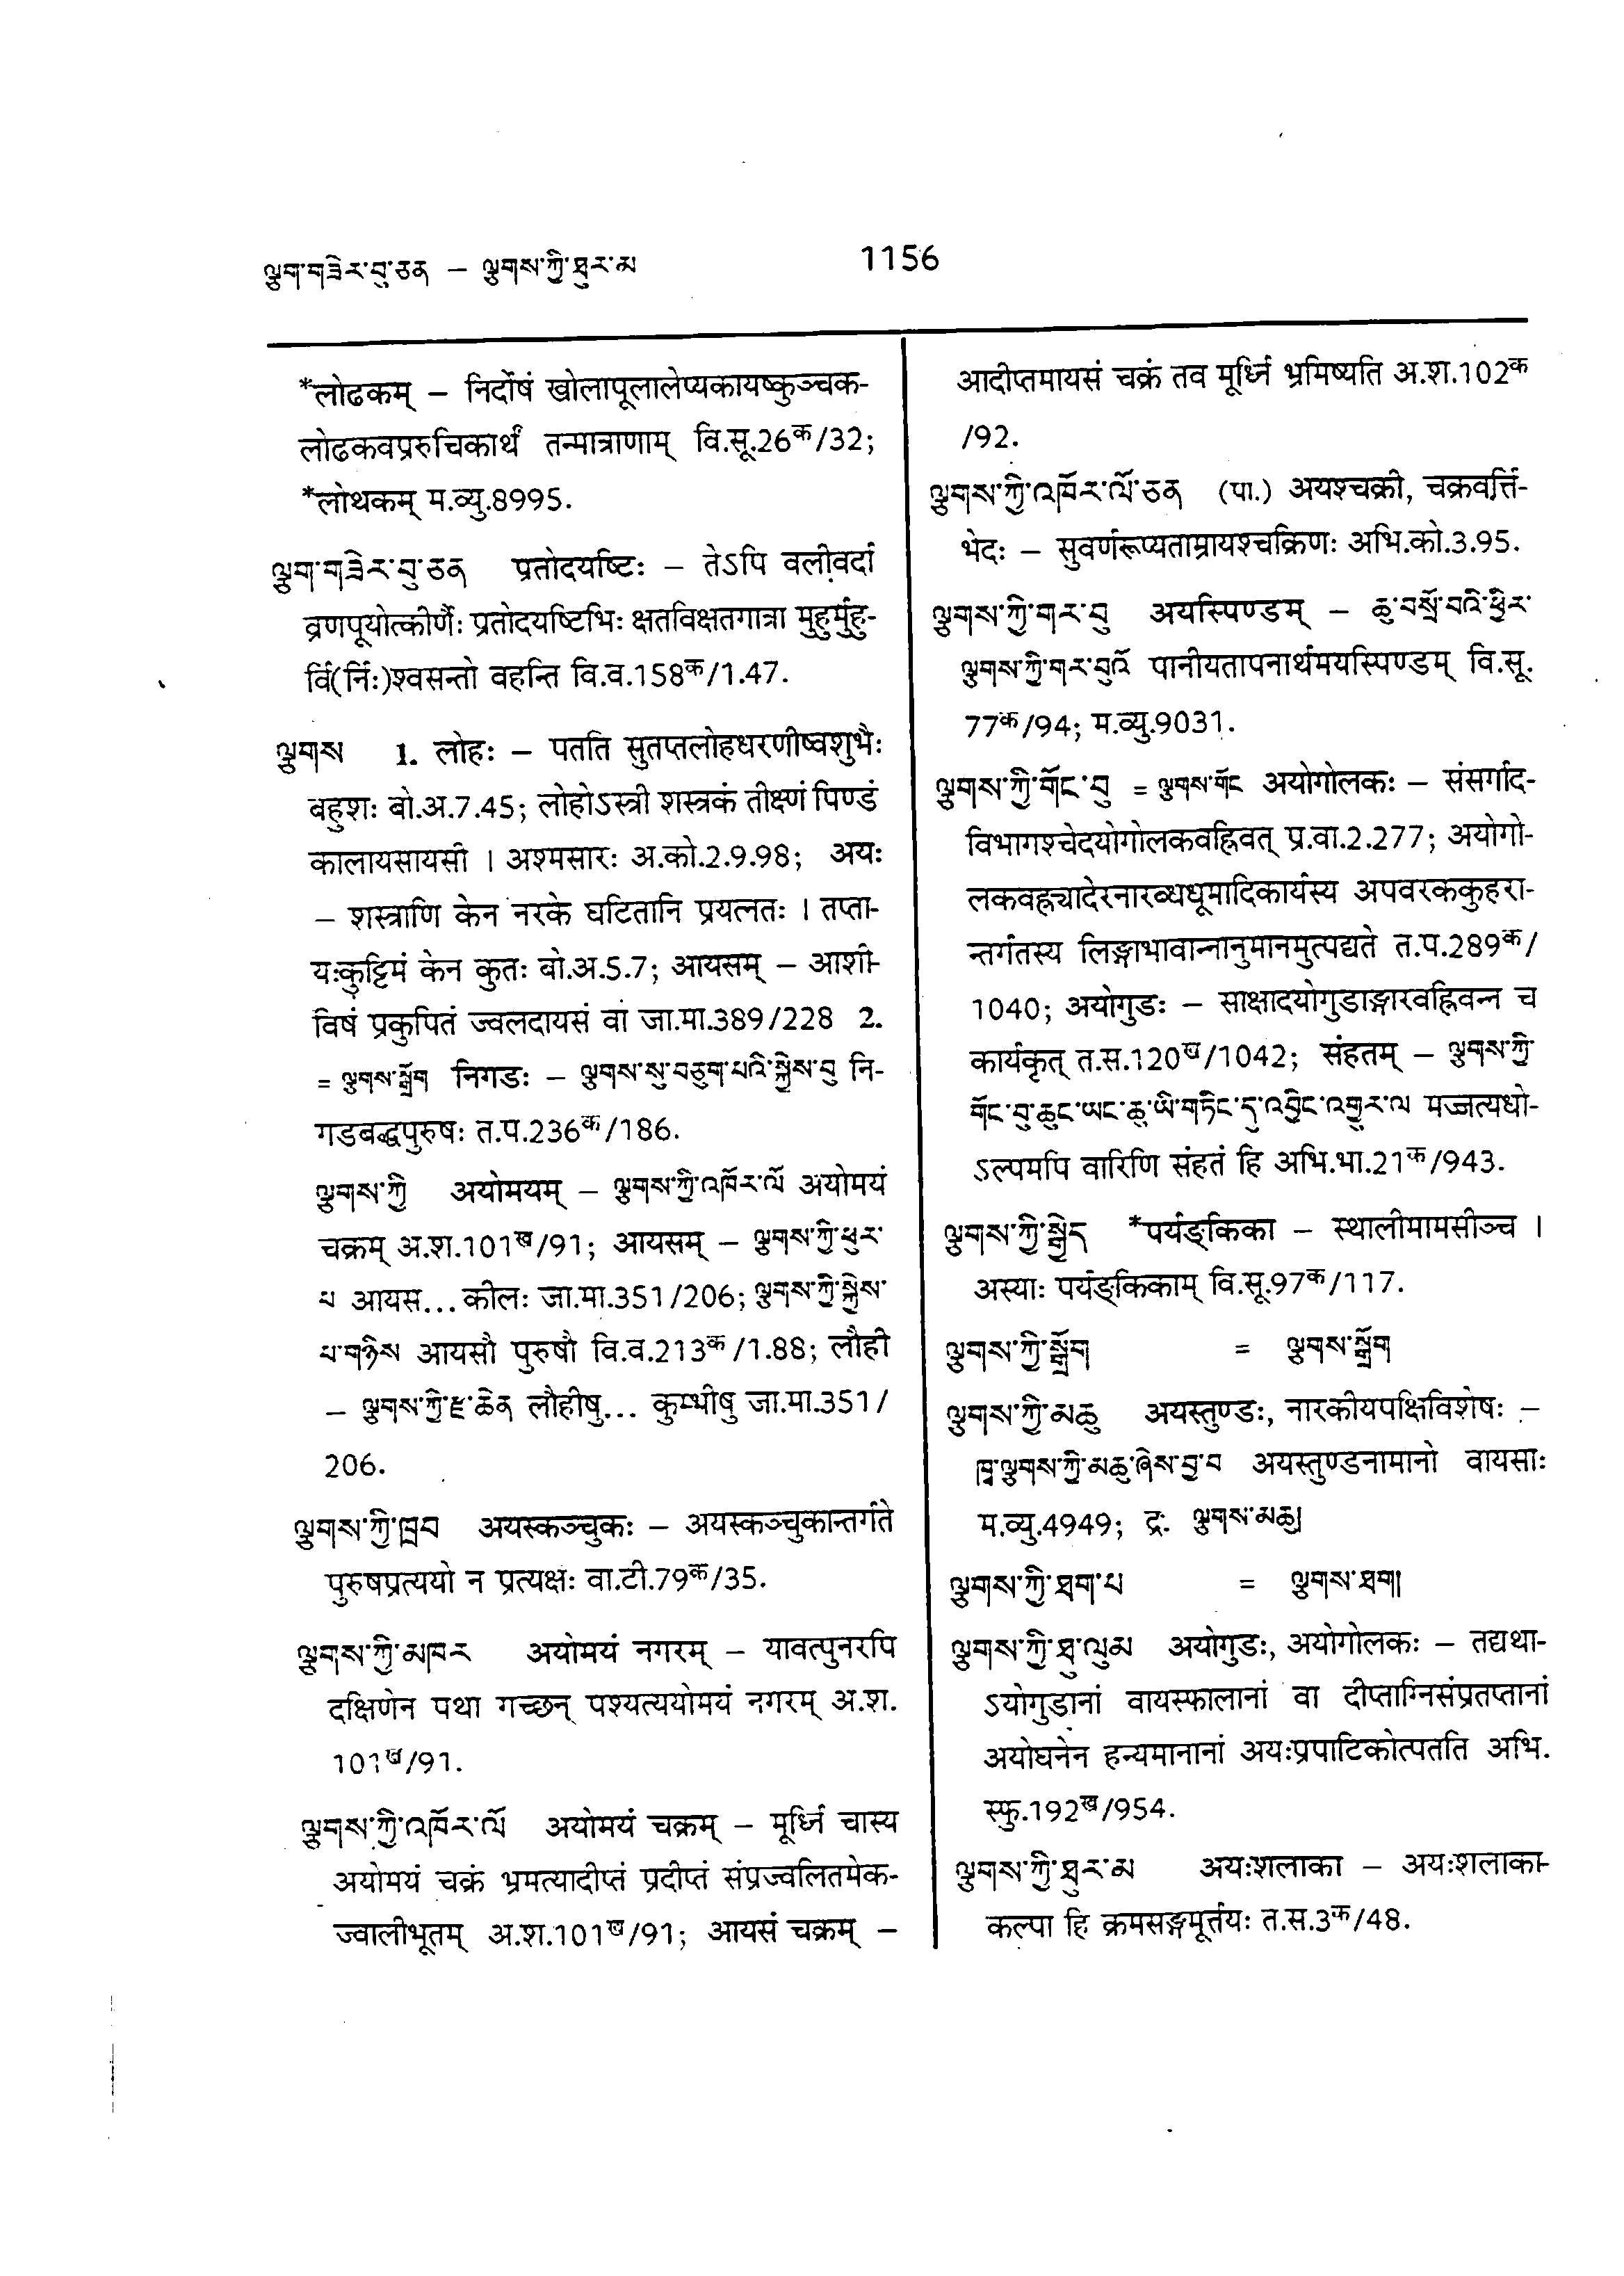 ལྕུག་གཟེར་བུ་ཅན – ལྕགས་ཀྱི་ཐུར་མ 1156
*लोढकम् – निर्दोषं खोलापूलालेप्यकायष्कुञ्चक-
लोढकवप्ररुचिकार्थं तन्मात्राणाम् वि.सू.26क/32;
*लोथकम् म.व्यु.8995.
ལྕུག་གཟེར་བུ་ཅན प्रतोदयष्टिः – तेऽपि वलीवर्दा
व्रणपूयोत्कीर्णैः प्रतोदयष्टिभिः क्षतविक्षतगात्रा मुहुर्मुहु-
र्वि(र्निः)श्वसन्तो वहन्ति वि.व.158क/1.47.
ལྕགས 1. लोहः – पतति सुतप्तलोहधरणीष्वशुभैः
बहुशः बो.अ.7.45; लोहोऽस्त्री शस्त्रकं तीक्ष्णं पिण्डं
कालायसायसी । अश्मसारः अ.को.2.9.98; अयः
– शस्त्राणि केन नरके घटितानि प्रयत्नतः । तप्ता-
यःकुट्टिमं केन कुतः बो.अ.5.7; आयसम् – आशी-
विषं प्रकुपितं ज्वलदायसं वा जा.मा.389/228 2.
= ལྕགས་སྒྲོག निगडः – ལྕགས་སུ་བཅུག་པའི་སྐྱེས་བུ नि-
गडबद्धपुरुषः त.प.236क/186.
ལྕགས་ཀྱི अयोमयम् – ལྕགས་ཀྱི་འཁོར་ལོ अयोमयं
चक्रम् अ.श.101ख/91; आयसम् – ལྕགས་ཀྱི་ཕུར་
པ आयस... कीलः जा.मा.351/206; ལྕགས་ཀྱི་སྐྱེས་
པ་གཉིས आयसौ पुरुषौ वि.व.213क/1.88; लौही
– ལྕགས་ཀྱི་རྫ་ཆེན लौहीषु... कुम्भीषु जा.मा.351/
206.
ལྕགས་ཀྱི་ཁྲབ अयस्कञ्चुकः – अयस्कञ्चुकान्तर्गते
पुरुषप्रत्ययो न प्रत्यक्षः वा.टी.79क/35.
ལྕགས་ཀྱི་མཁར अयोमयं नगरम् – यावत्पुनरपि
दक्षिणेन पथा गच्छन् पश्यत्ययोमयं नगरम् अ.श.
101ख/91.
ལྕགས་ཀྱི་འཁོར་ལོ अयोमयं चक्रम् – मूर्ध्नि चास्य
अयोमयं चक्रं भ्रमत्यादीप्तं प्रदीप्तं संप्रज्वलितमेक-
ज्वालीभूतम् अ.श.101ख/91; आयसं चक्रम् –
आदीप्तमायसं चक्रं तव मूर्ध्नि भ्रमिष्यति अ.श.102क
/92.
ལྕགས་ཀྱི་འཁོར་ལོ་ཅན (पा.) अयश्चक्री, चक्रवर्त्ति-
भेदः – सुवर्णरूप्यताम्रायश्चक्रिणः अभि.को.3.95.
ལྕགས་ཀྱི་གར་བུ अयस्पिण्डम् – ཆུ་བསྲོ་བའི་ཕྱིར་
ལྕགས་ཀྱི་གར་བུའོ पानीयतापनार्थमयस्पिण्डम् वि.सू.
77क/94; म.व्यु.9031.
ལྕགས་ཀྱི་གོང་བུ = ལྕགས་གོང अयोगोलकः – संसर्गाद-
विभागश्चेदयोगोलकवह्निवत् प्र.वा.2.277; अयोगो-
लकवह्न्यादेरनारब्धधूमादिकार्यस्य अपवरककुहरा-
न्तर्गतस्य लिङ्गाभावान्नानुमानमुत्पद्यते त.प.289क/
1040; अयोगुडः – साक्षादयोगुडाङ्गारवह्निवन्न च
कार्यकृत् त.स.120ख/1042; संहतम् – ལྕགས་ཀྱི་
གོང་བུ་ཆུང་ཡང་ཆུ་ཡི་གཏིང་དུ་འབྱིང་འགྱུར་ལ मज्जत्यधो-
ऽल्पमपि वारिणि संहतं हि अभि.भा.21क/943.
ལྕགས་ཀྱི་སྒྱེད *पर्यङ्किका – स्थालीमामसीञ्च ।
अस्याः पर्यङ्किकाम् वि.सू.97क/117.
ལྕགས་ཀྱི་སྒྲོག = ལྕགས་སྒྲོག
ལྕགས་ཀྱི་མཆུ अयस्तुण्डः, नारकीयपक्षिविशेषः –
ཁྭ་ལྕགས་ཀྱི་མཆུ་ཞེས་བྱ་བ अयस्तुण्डनामानो वायसाः
म.व्यु.4949; द्र. ལྕགས་མཆུ།
ལྕགས་ཀྱི་ཐག་པ = ལྕགས་ཐག།
ལྕགས་ཀྱི་ཐུ་ལུམ अयोगुडः, अयोगोलकः – तद्यथा-
ऽयोगुडानां वायस्फालानां वा दीप्ताग्निसंप्रतप्तानां
अयोघनेन हन्यमानानां अयःप्रपाटिकोत्पतति अभि.
स्फु.192ख/954.
ལྕགས་ཀྱི་ཐུར་མ अयःशलाका – अयःशलाका-
कल्पा हि क्रमसङ्गमूर्त्तयः त.स.3क/48.